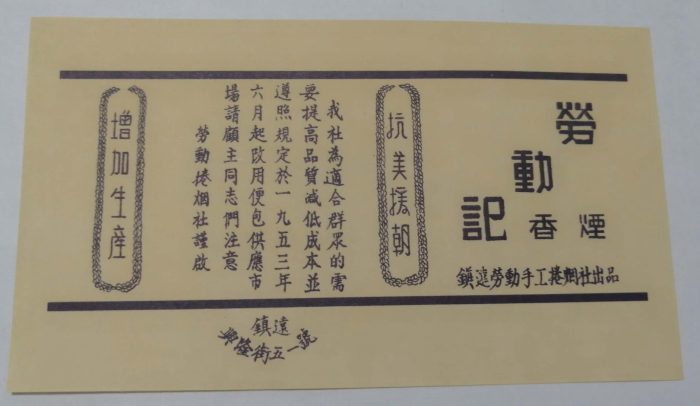 勞動記
香煙
鎮遠勞動手工捲烟社出品
抗美援朝
我社為適合群眾的需
要提高品質减低成本並
遵照規定於一九五三年
六月起改用便包供應市
場請顧主同志們注意
勞動捲烟社謹啟
增加生產
鎮遠
興隆街五一號